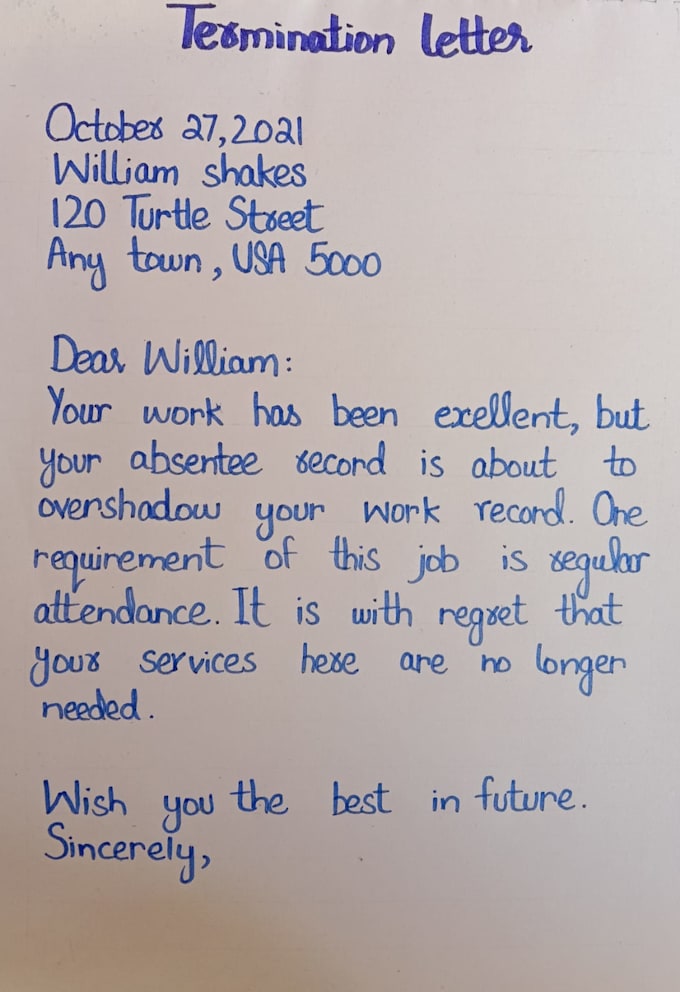 Termination letter
October 27,2021
William shakes
120 Turtle Street
Any town, USA 5000
Dear William:
Your work has been exellent, but
your absentee record is about to
overshadow your work record. One
requirement of this job is regular
attendance. It is with regret that
your services here are no longer
needed.
Wish you the best in future.
Sincerely,